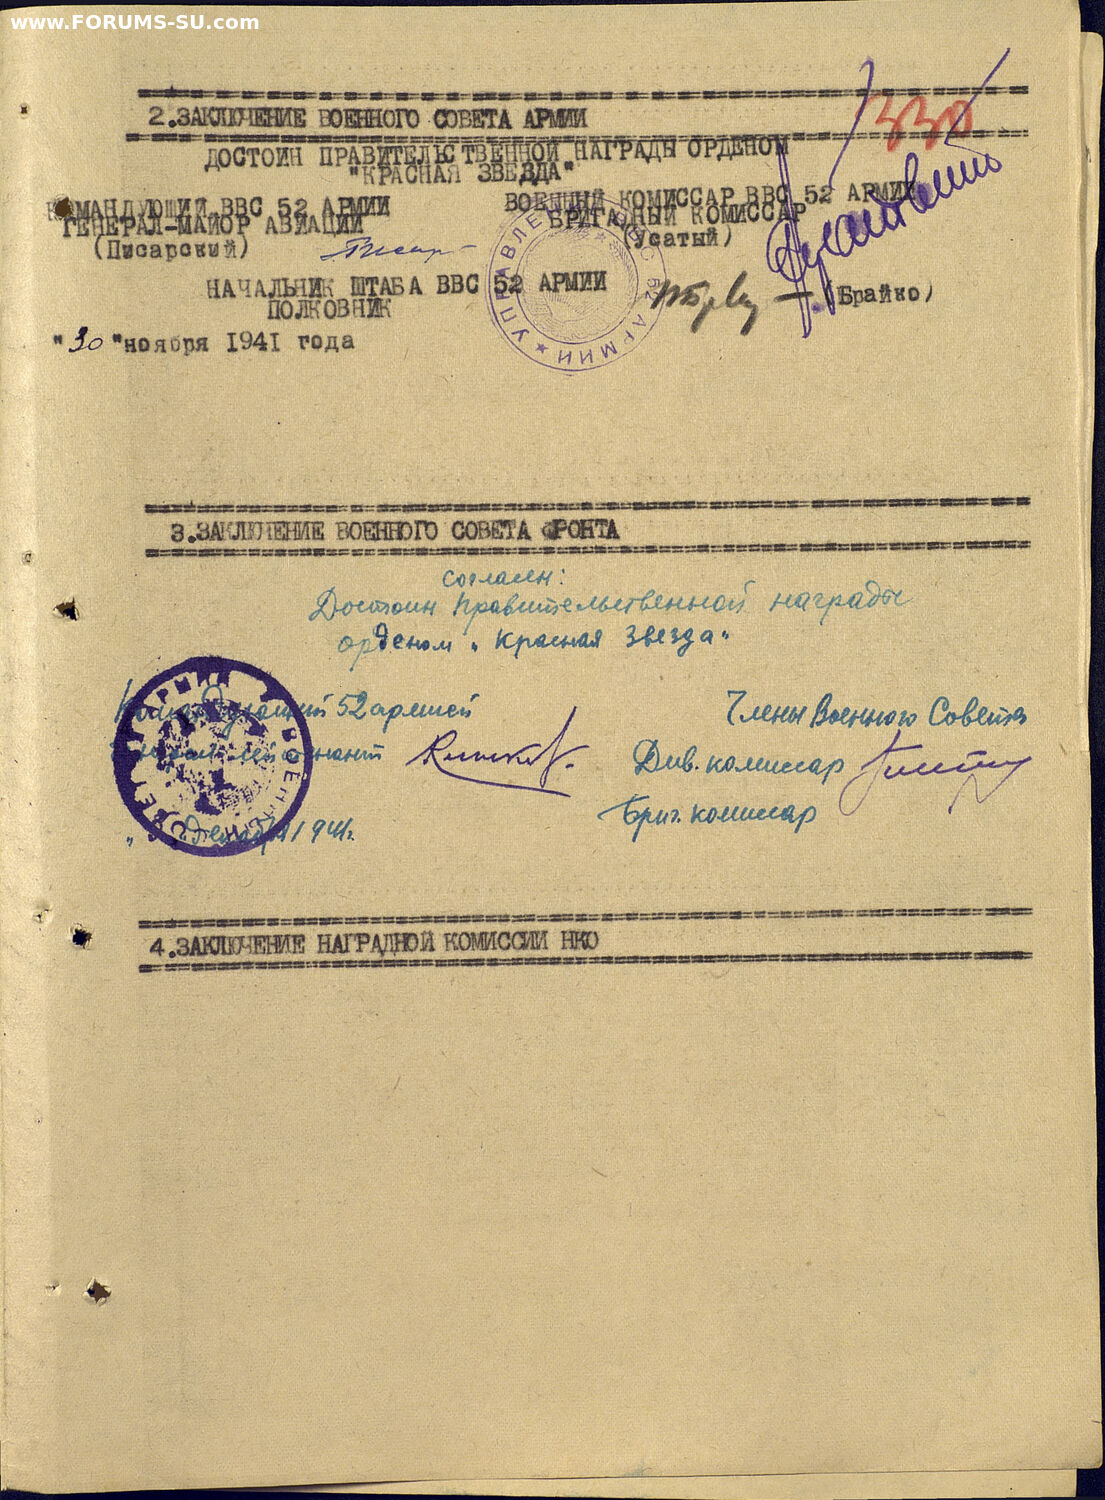 www.FORUMS-SU.com
330
2.ЗАКЛЮЧЕНИЕ ВОЕННОГО СОВЕТА АРМИИ
ДОСТОИН ПРАВИТЕЛЬСТВЕННОЙ НАГРАДЫ ОРДЕНОМ
"КРАСНАЯ ЗВЕЗДА"
КОМАНДУЮЩИЙ ВВС 52 АРМИИ
ГЕНЕРАЛ-МАЙОР АВИАЦИИ
(Писарский)
ВОЕННЫЙ КОМИССАР ВВС 52 АРМИИ
БРИГАДНЫЙ КОМИССАР
(Усатый)
НАЧАЛЬНИК ШТАБА ВВС 52 АРМИИ
ПОЛКОВНИК
(Брайко)
"30"ноября 1941 года
УПРАВЛЕНИЕ ВВС 52 АРМИИ
3.ЗАКЛЮЧЕНИЕ ВОЕННОГО СОВЕТА ФРОНТА
согласен:
Достоин правительственной награды
орденом "Красная Звезда"
Командующий 52 армией
Члены Военного Совета
Див. комиссар
Бриг. комиссар
" декабря 1941г.
4.ЗАКЛЮЧЕНИЕ НАГРАДНОЙ КОМИССИИ НКО